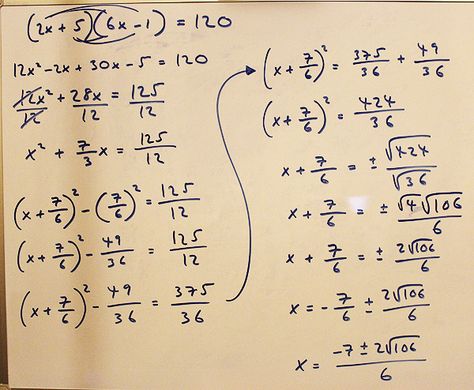 (2x + 5)(6x - 1) = 120
12x² - 2x + 30x - 5 = 120
12x²/12 + 28x/12 = 125/12
x² + 7/3 x = 125/12
(x + 7/6)² - (7/6)² = 125/12
(x + 7/6)² - 49/36 = 125/12
(x + 7/6)² - 49/36 = 375/36
(x + 7/6)² = 375/36 + 49/36
(x + 7/6)² = 424/36
x + 7/6 = ± √424/√36
x + 7/6 = ± √4√106/6
x + 7/6 = ± 2√106/6
x = - 7/6 ± 2√106/6
x = -7 ± 2√106/6